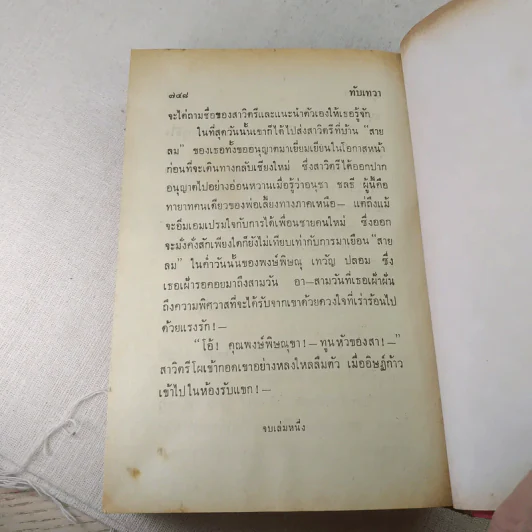 ๗๔๘ ทับเทวา
จะได้ถามชื่อของสาวิตรีและแนะนำตัวเองให้เธอรู้จัก
ในที่สุดวันนั้นเขาก็ได้ไปส่งสาวิตรีที่บ้าน “สาย
ลม” ของเธอทั้งขออนุญาตมาเยี่ยมเยียนในโอกาสหน้า
ก่อนที่จะเดินทางกลับเชียงใหม่ ซึ่งสาวิตรีได้ออกปาก
อนุญาตไปอย่างอ่อนหวานเมื่อรู้ว่าอนุชา ชลธี ผู้นี้คือ
ทายาทคนเดียวของพ่อเลี้ยงทางภาคเหนือ— แต่ถึงแม้
จะอิ่มเอมเปรมใจกับการได้เพื่อนชายคนใหม่ ซึ่งออก
จะมั่งคั่งสักเพียงใดก็ยังไม่เทียบเท่ากับการมาเยือน “สาย
ลม” ในค่ำวันนั้นของพงษ์พิษณุ เทวัญ ปลอม ซึ่ง
เธอเฝ้ารอคอยมาถึงสามวัน อา—สามวันที่เธอเฝ้าฝัน
ถึงความพิศวาสที่จะได้รับจากเขาด้วยดวงใจที่เร่าร้อนไป
ด้วยแรงรัก!—
“โอ้! คุณพงษ์พิษณุขา!— ทูนหัวของสา!—”
สาวิตรีโผเข้ากอดเขาอย่างหลงใหลลืมตัว เมื่ออิษฏ์ก้าว
เข้าไปในห้องรับแขก!—
จบเล่มหนึ่ง